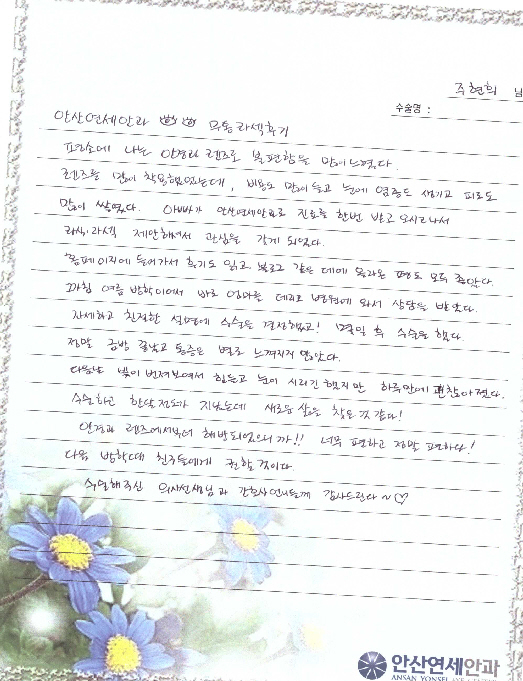 주현희 님
수술명 :
안산연세안과 무통라섹후기
평소에 나는 안경과 렌즈로 불편함을 많이 느꼈다.
렌즈를 많이 착용했었는데, 비용도 많이 들고 눈에 염증도 생기고 피로도
많이 쌓였다. 아빠가 안산연세안과로 진료를 한번 받고 오시고나서
라식, 라섹 제안하셔서 관심을 갖게 되었다.
홈페이지에 들어가서 후기도 읽고, 블로그 같은 데에 올라온 평도 모두 좋았다.
마침 여름 방학이어서 바로 엄마를 데리고 병원에 와서 상담을 받았다.
자세하고 친절한 설명에 수술을 결정했고! 몇일 후 수술을 했다.
정말 금방 끝났고 통증은 별로 느껴지지 않았다.
다음날 빛이 번져보여서 힘들고 눈이 시리긴 했지만 하루만에 괜찮아졌다.
수술하고 한달정도가 지났는데 새로운 삶을 찾은 것 같다!
안경과 렌즈에서부터 해방되었으니까!! 너무 편하고 정말 편하다!
다음 방학때 친구들에게 권할 것이다.
수술해주신 의사선생님과 간호사언니들께 감사드린다~♡
안산연세안과
ANSAN YONSEI EYE CENTER